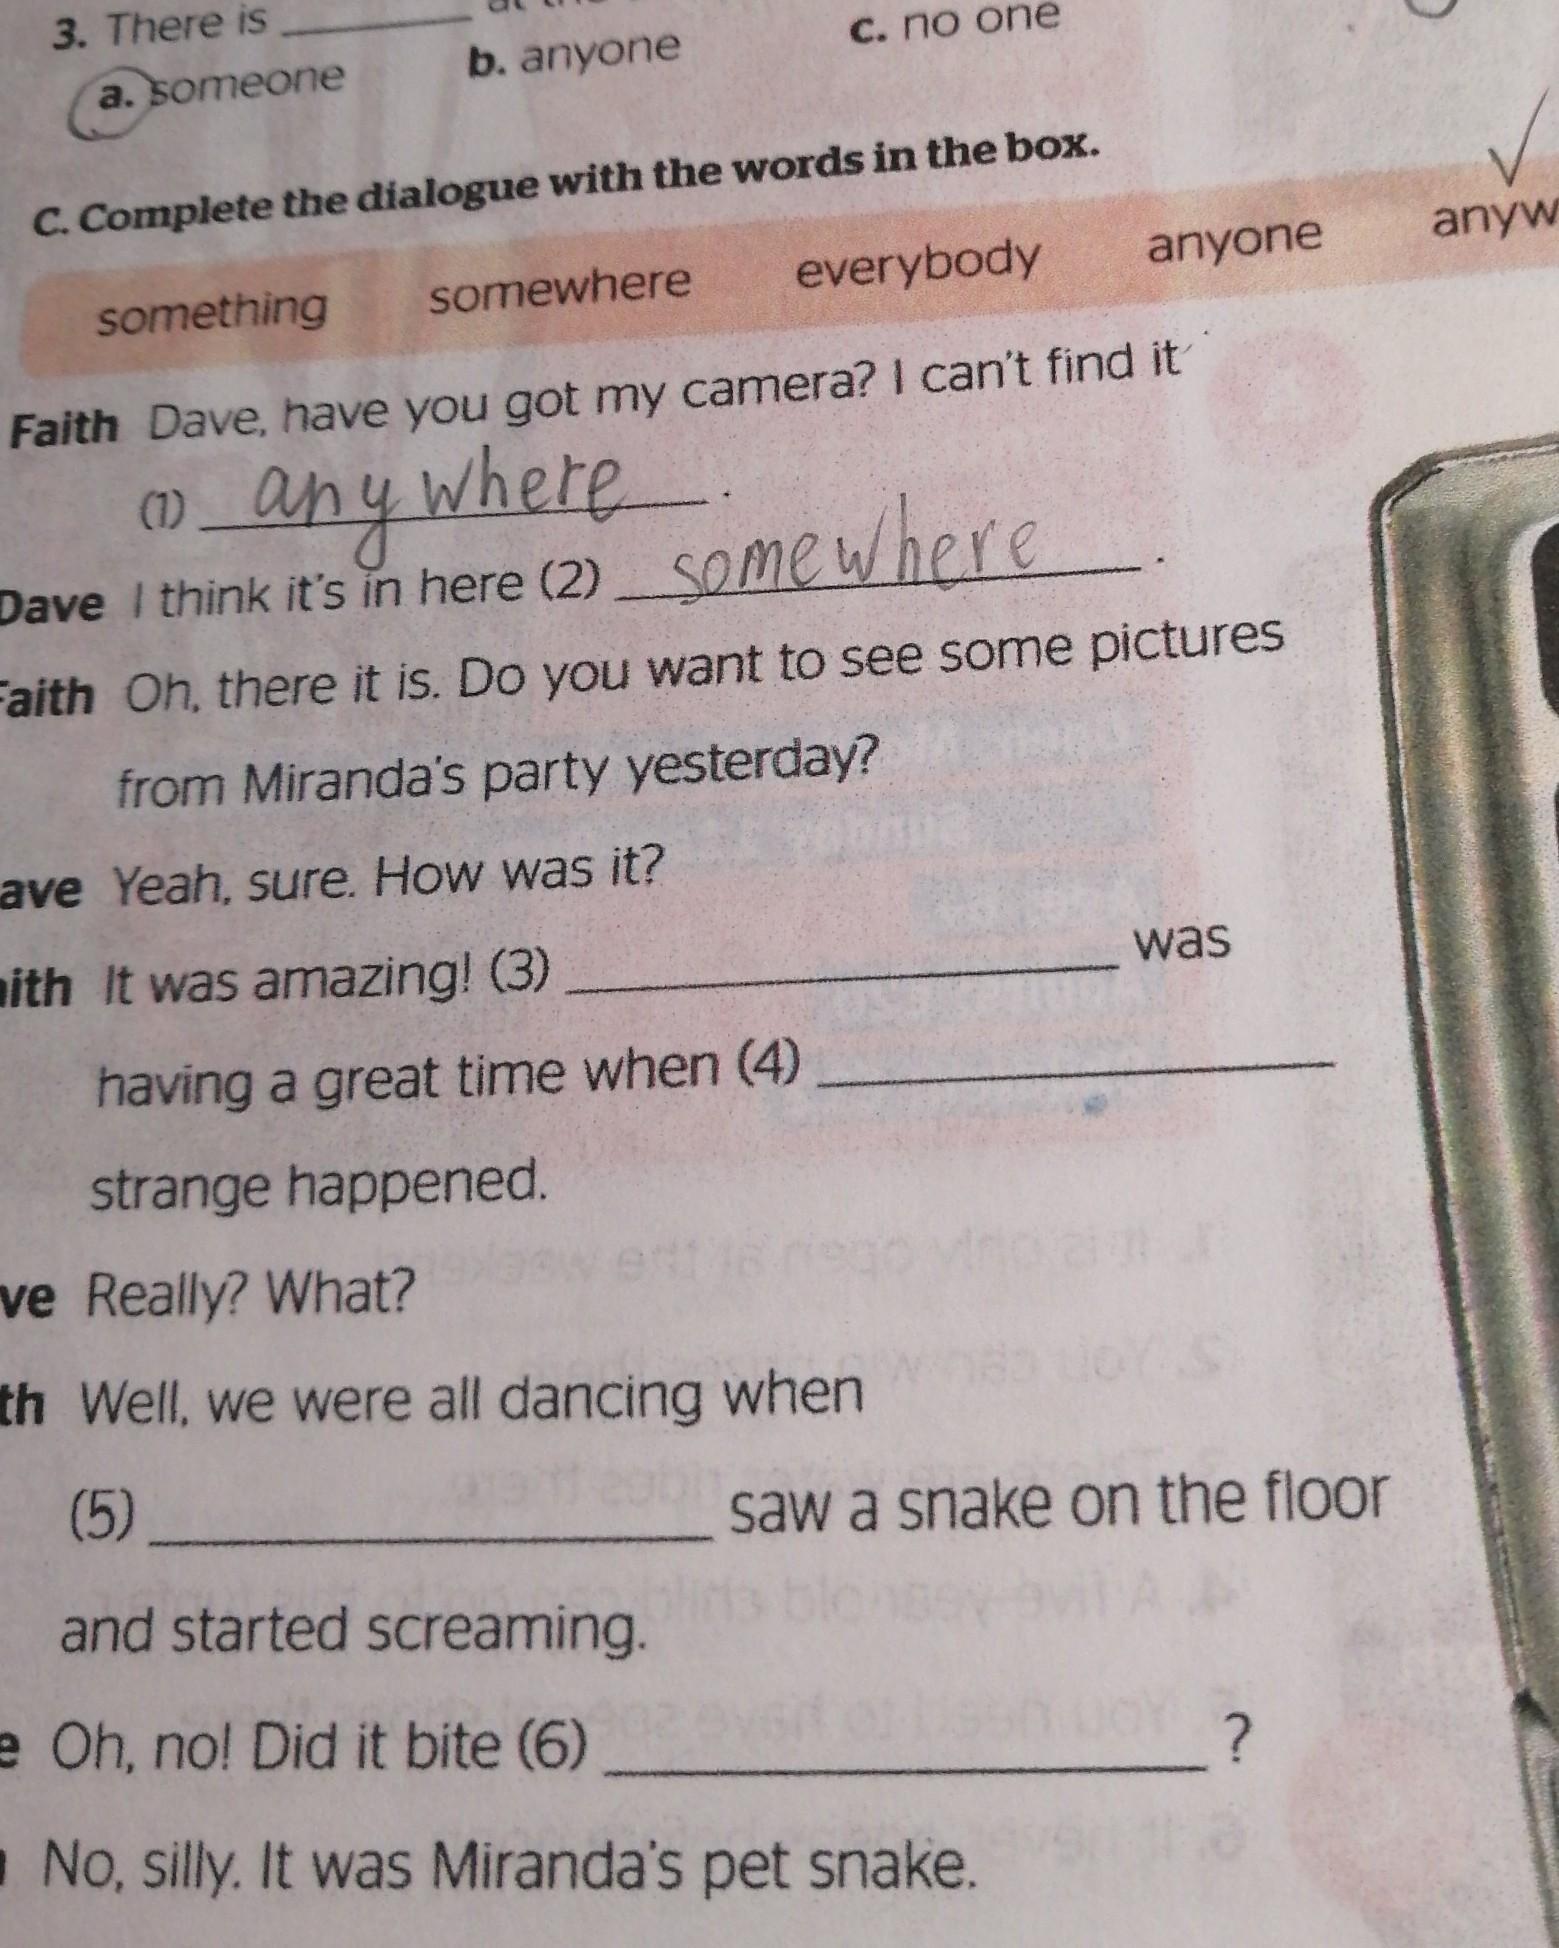 3. There is ________
a. someone b. anyone c. no one
C. Complete the dialogue with the words in the box.
something somewhere everybody anyone anyw
Faith Dave, have you got my camera? I can't find it
(1) anywhere.
Dave I think it's in here (2) somewhere.
Faith Oh, there it is. Do you want to see some pictures
from Miranda's party yesterday?
ave Yeah, sure. How was it?
ith It was amazing! (3) ________ was
having a great time when (4) ________
strange happened.
ve Really? What?
th Well, we were all dancing when
(5) ________ saw a snake on the floor
and started screaming.
e Oh, no! Did it bite (6) ________?
No, silly. It was Miranda's pet snake.